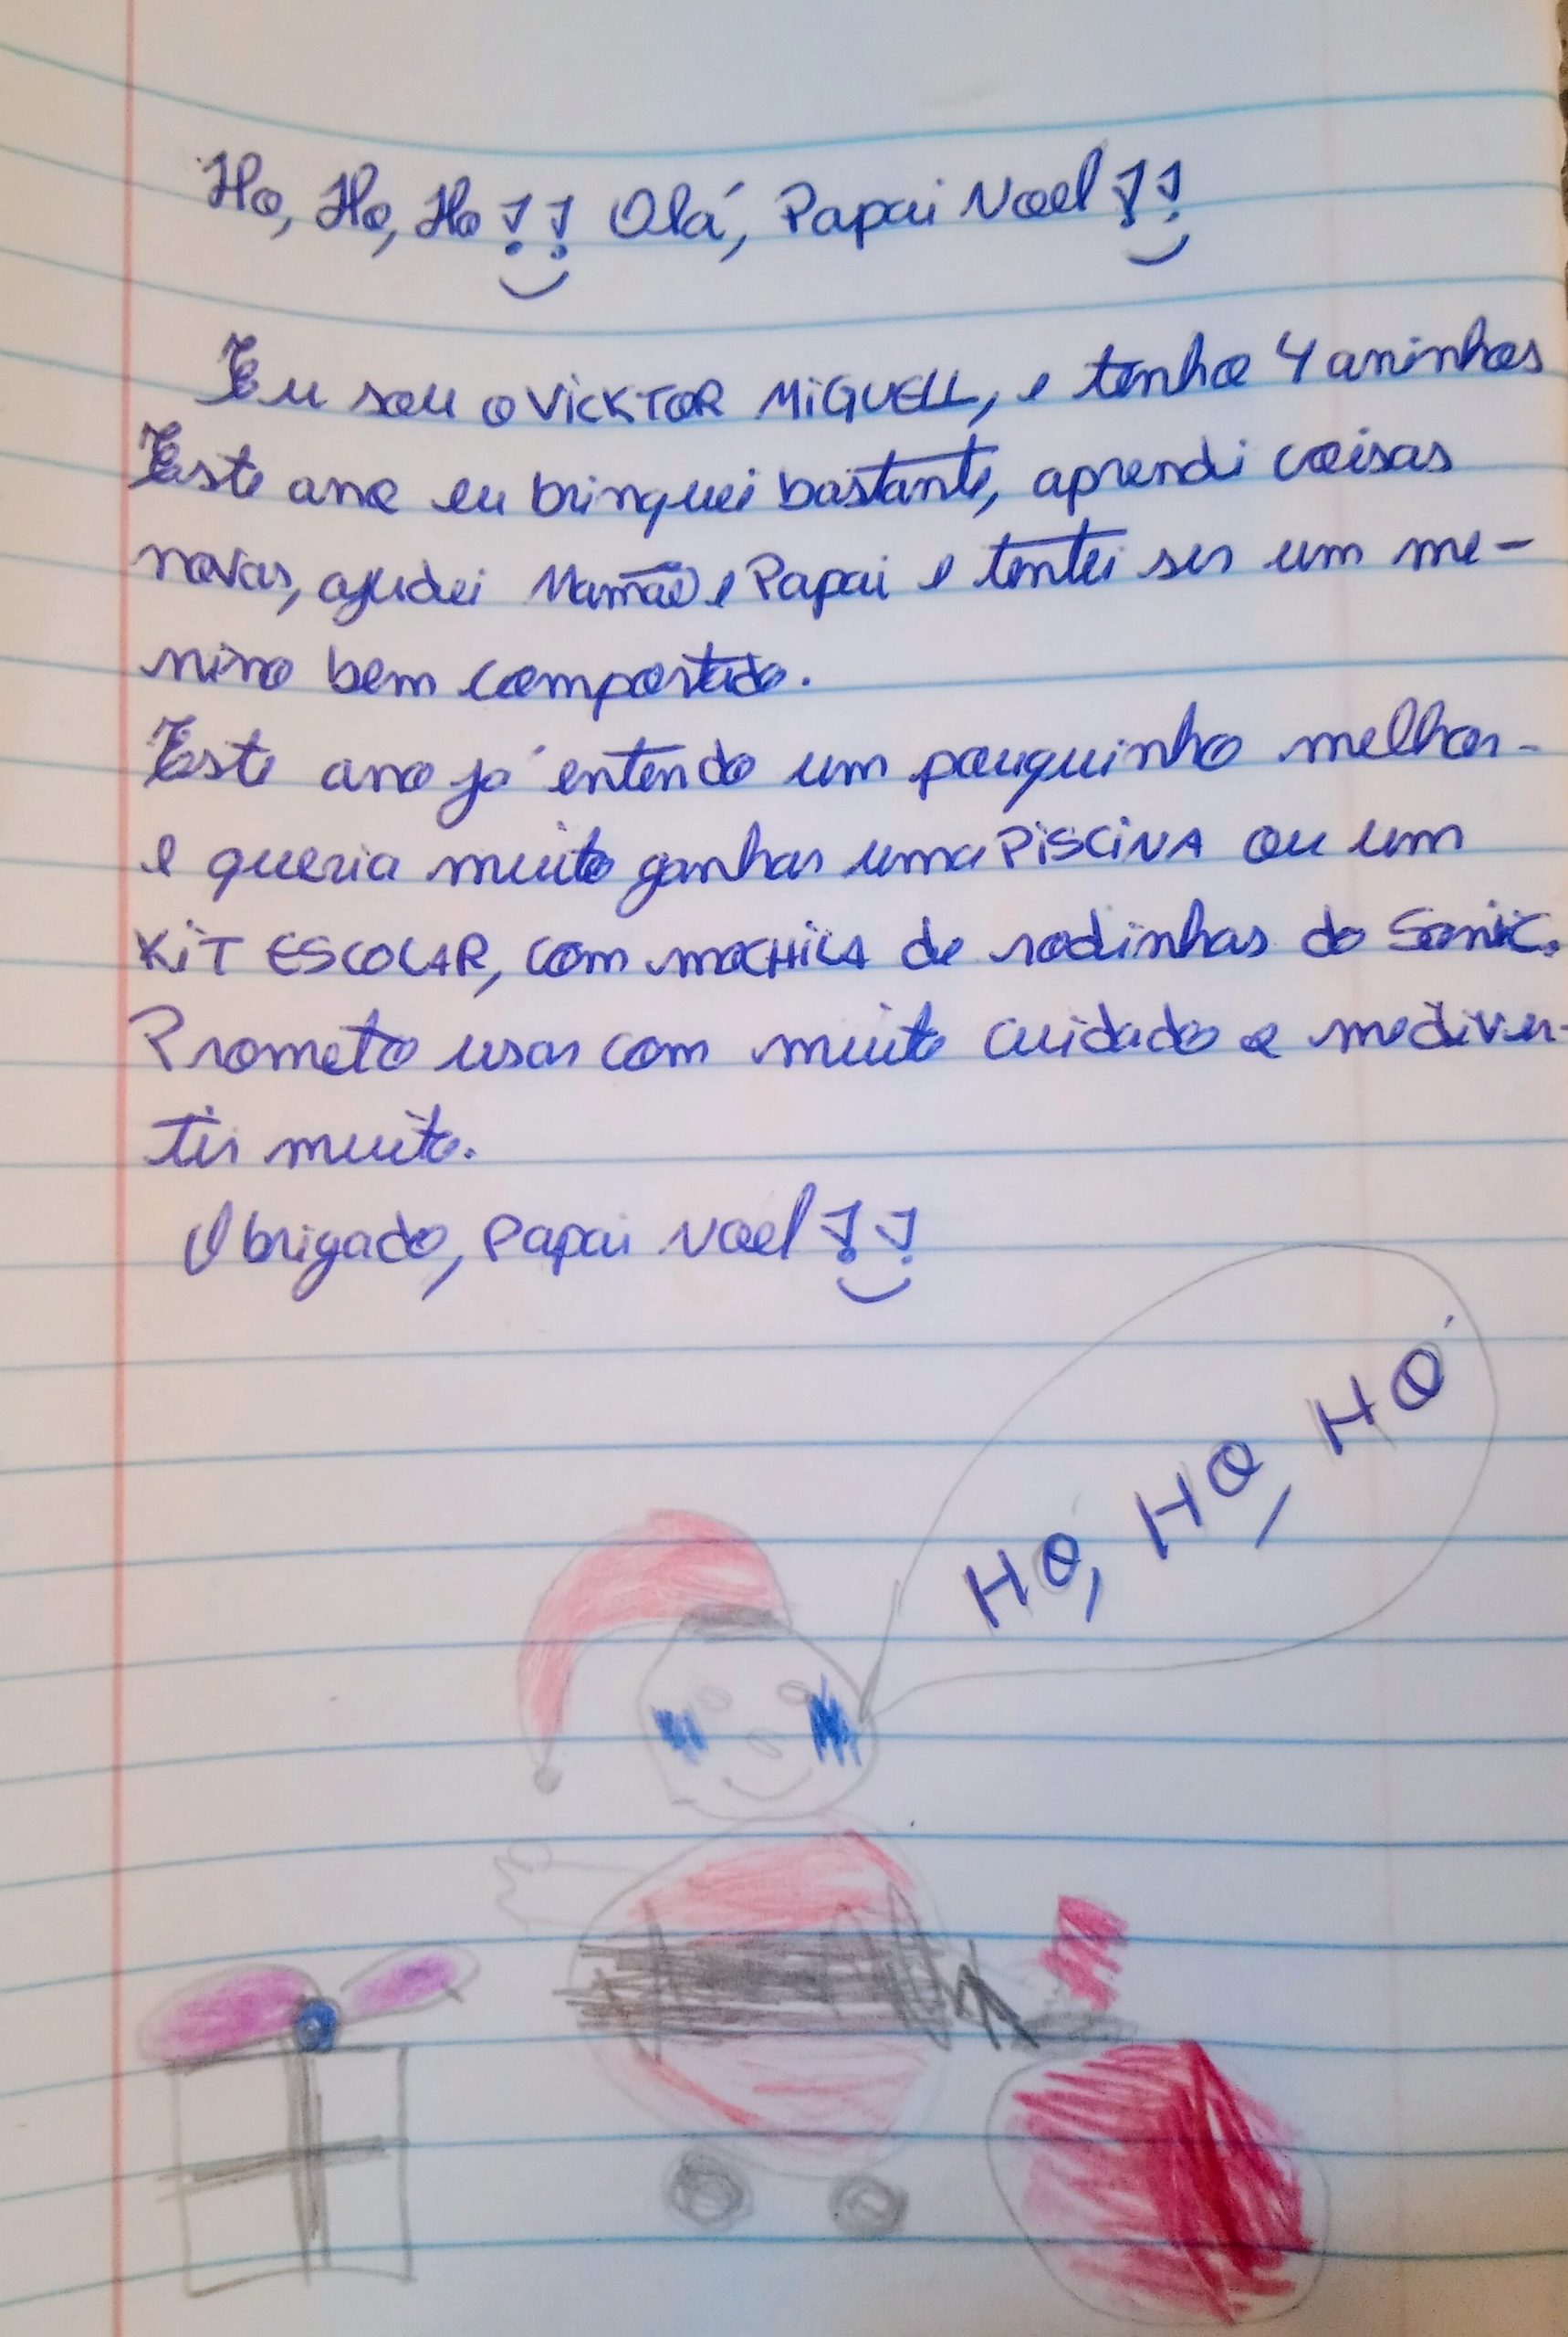 Ho, Ho, Ho!! Olá, Papai Noel!!
Eu sou o VICKTOR MIGUELL, e tenho 4 aninhos
Este ano eu brinquei bastante, aprendi coisas
novas, ajudei Mamãe e Papai e tentei ser um me-
nino bem comportado.
Este ano já entendo um pouquinho melhor
e queria muito ganhar uma PISCINA ou um
KIT ESCOLAR, com mocHILA de rodinhas do Sonic.
Prometo usar com muito cuidado e me diver-
tir muito.
Obrigado, Papai Noel!!
HO, HO, HO